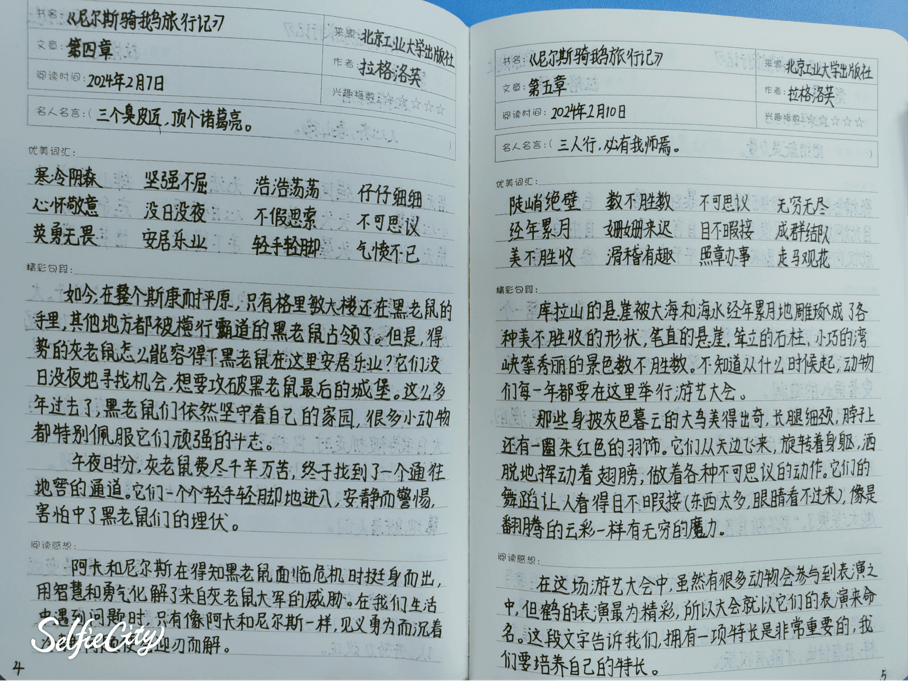 书名:《尼尔斯骑鹅旅行记》
来源:北京工业大学出版社
文章:第四章
作者:拉格洛芙
阅读时间:2024年2月7日
兴趣指数:☆☆☆☆☆
名人名言:(三个臭皮匠,顶个诸葛亮。)
优美词汇:
寒冷阴森 坚强不屈 浩浩荡荡 仔仔细细
心怀敬意 没日没夜 不假思索 不可思议
英勇无畏 安居乐业 轻手轻脚 气愤不已
精彩句段:
如今,在整个斯康耐平原,只有格里敏大楼还在黑老鼠的
手里,其他地方都被横行霸道的黑老鼠占领了。但是,得
势的灰老鼠怎么能容得下黑老鼠在这里安居乐业?它们没
日没夜地寻找机会,想要攻破黑老鼠最后的城堡。这么多
年过去了,黑老鼠们依然坚守着自己的家园,很多小动物
都特别佩服它们顽强的斗志。
午夜时分,灰老鼠费尽千辛万苦,终于找到了一个通往
地窖的通道。它们一个个轻手轻脚地进入,安静而警惕,
害怕中了黑老鼠们的埋伏。
阅读感想:
阿卡和尼尔斯在得知黑老鼠面临危机时挺身而出,
用智慧和勇气化解了来自灰老鼠大军的威胁。在我们生活
中遇到问题时,只有像阿卡和尼尔斯一样,见义勇为而沉着
迎刃而解。
SelfieCity
4
书名:《尼尔斯骑鹅旅行记》
来源:北京工业大学出版社
文章:第五章
作者:拉格洛芙
阅读时间:2024年2月10日
兴趣指数:☆☆☆☆☆
名人名言:(三人行,必有我师焉。)
优美词汇:
陡峭绝壁 数不胜数 不可思议 无穷无尽
经年累月 姗姗来迟 目不暇接 成群结队
美不胜收 滑稽有趣 照章办事 走马观花
精彩句段:
库拉山的悬崖被大海和海水经年累月地雕琢成了各
种美不胜收的形状,笔直的悬崖,耸立的石柱,小巧的湾
峡奎秀丽的景色数不胜数。不知道从什么时候起,动物
们每一年都要在这里举行游艺大会。
那些身披灰色暮云的大鸟美得出奇,长腿细颈,脖子上
还有一圈朱红色的羽饰。它们从天边飞来,旋转着身躯,洒
脱地挥动着翅膀,做着各种不可思议的动作。它们的
舞蹈让人看得目不暇接(东西太多,眼睛看不过来),像是
翻腾的云彩一样有无穷的魔力。
阅读感想:
在这场游艺大会中,虽然有很多动物会参与到表演之
中,但鹤的表演最为精彩,所以大会就以它们的表演来命
名。这段文字告诉我们,拥有一项特长是非常重要的,我
们要培养自己的特长。
5